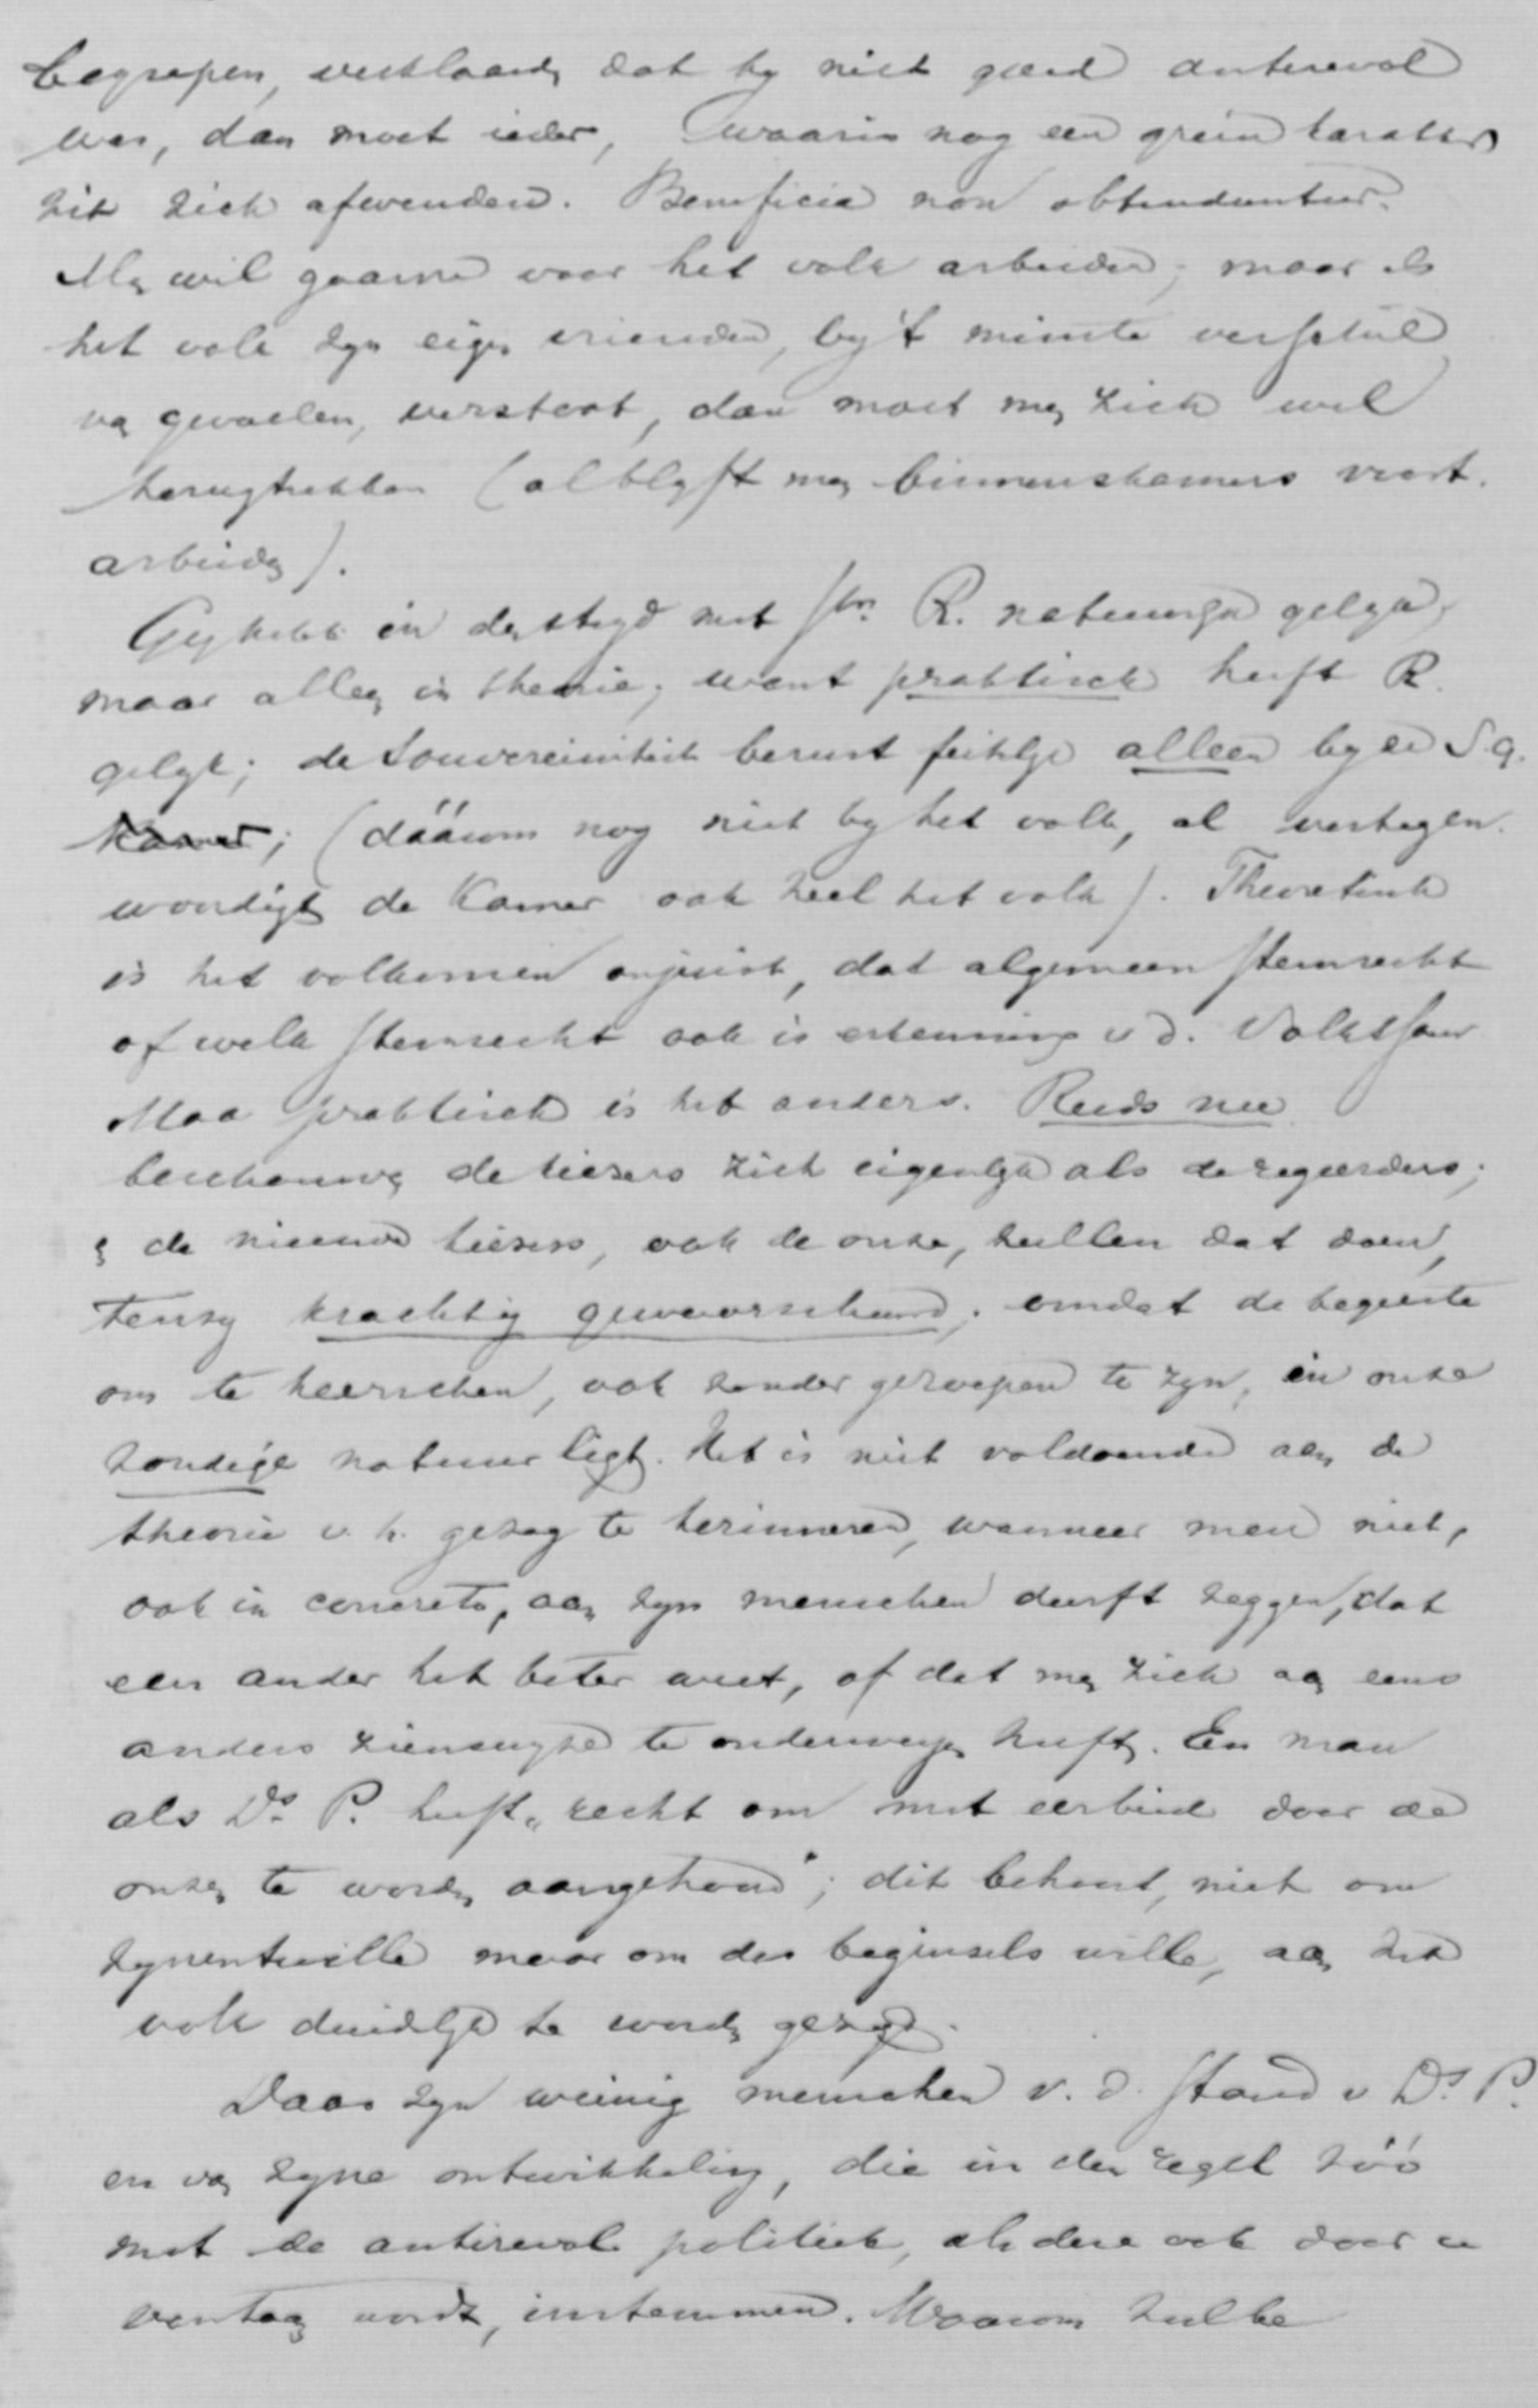 begrepen, verklaard, dat hy niet goed antirevol
was, dan moet ieder, waarin nog een grein karakter
zit zich afwenden. Beneficia non obtruduntur.
Men wil gaarne voor het volk arbeiden; maar als
het volk zyn eigen vrienden, by 't minste verschil
van gevoelen, verstoot, dan moet men zich wel
terugtrekken (al blyft men binnenskamers voort-
arbeiden).
Gy hebt in den stryd met Stn. R. natuurlyk gelyk,
maar alleen in theorie; want praktisch heeft R.
gelyk; de Souvereiniteit berust feitelyk alleen by de
Kamer; (dáárom nog niet by het volk, al vertegen-
woordigt de Kamer ook heel het volk). Theoretisch
is het volkomen onjuist, dat algemeen stemrecht
of welk stemrecht ook is erkenning v d. Volkssouv
Maar praktisch is het anders. Reeds nu
beschouwen de kiezers zich eigenlyk als de regeerders;
en de nieuwe kiezers, ook de onze, zullen dat doen,
tenzy krachtig gewaarschuwd; omdat de begeerte
om te heerschen, ook zonder geroepen te zyn, in onze
zondige natuur ligt. Het is niet voldoende aan de
theorie v. h. gezag te herinneren, wanneer men niet,
ook in concreto, aan zyn menschen durft zeggen, dat
een ander het beter weet, of dat men zich aan eens
anders zienswyze te onderwerpen heeft. Een man
als Ds. P. heeft „recht om met eerbied door de
onzen te worden aangehoord"; dit behoort, niet om
zynentwille maar om des beginsels wille, aan het
volk duidelyk te worden gezegd.
Daar zyn weinig menschen v. d. stand v Ds. P.
en van zyne ontwikkeling, die in den regel zóó
met de antirevol. politiek, als deze ook door u
wordt, instemmen. Waarom zulke